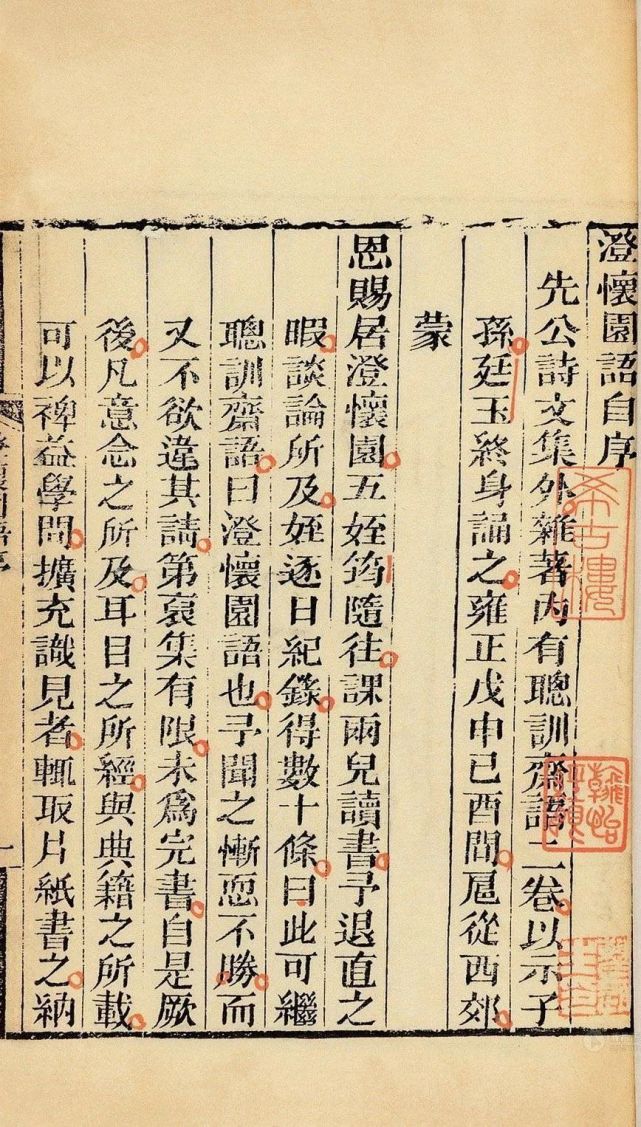 澄懷園語自序
先公詩文集外雜著內有聰訓齋語二卷以示子
孫廷玉終身誦之雍正戊申己酉間扈從西郊
蒙
恩賜居澄懷園五姪筠隨往課兩兒讀書予退直之
暇談論所及姪逐日紀錄得數十條曰此可繼
聰訓齋語曰澄懷園語也予聞之慚恧不勝而
又不欲違其請第裒集有限未為完書自是厥
後凡意念之所及耳目之所經與典籍之所載
可以裨益學問擴充識見者輒取片紙書之納
希古樓